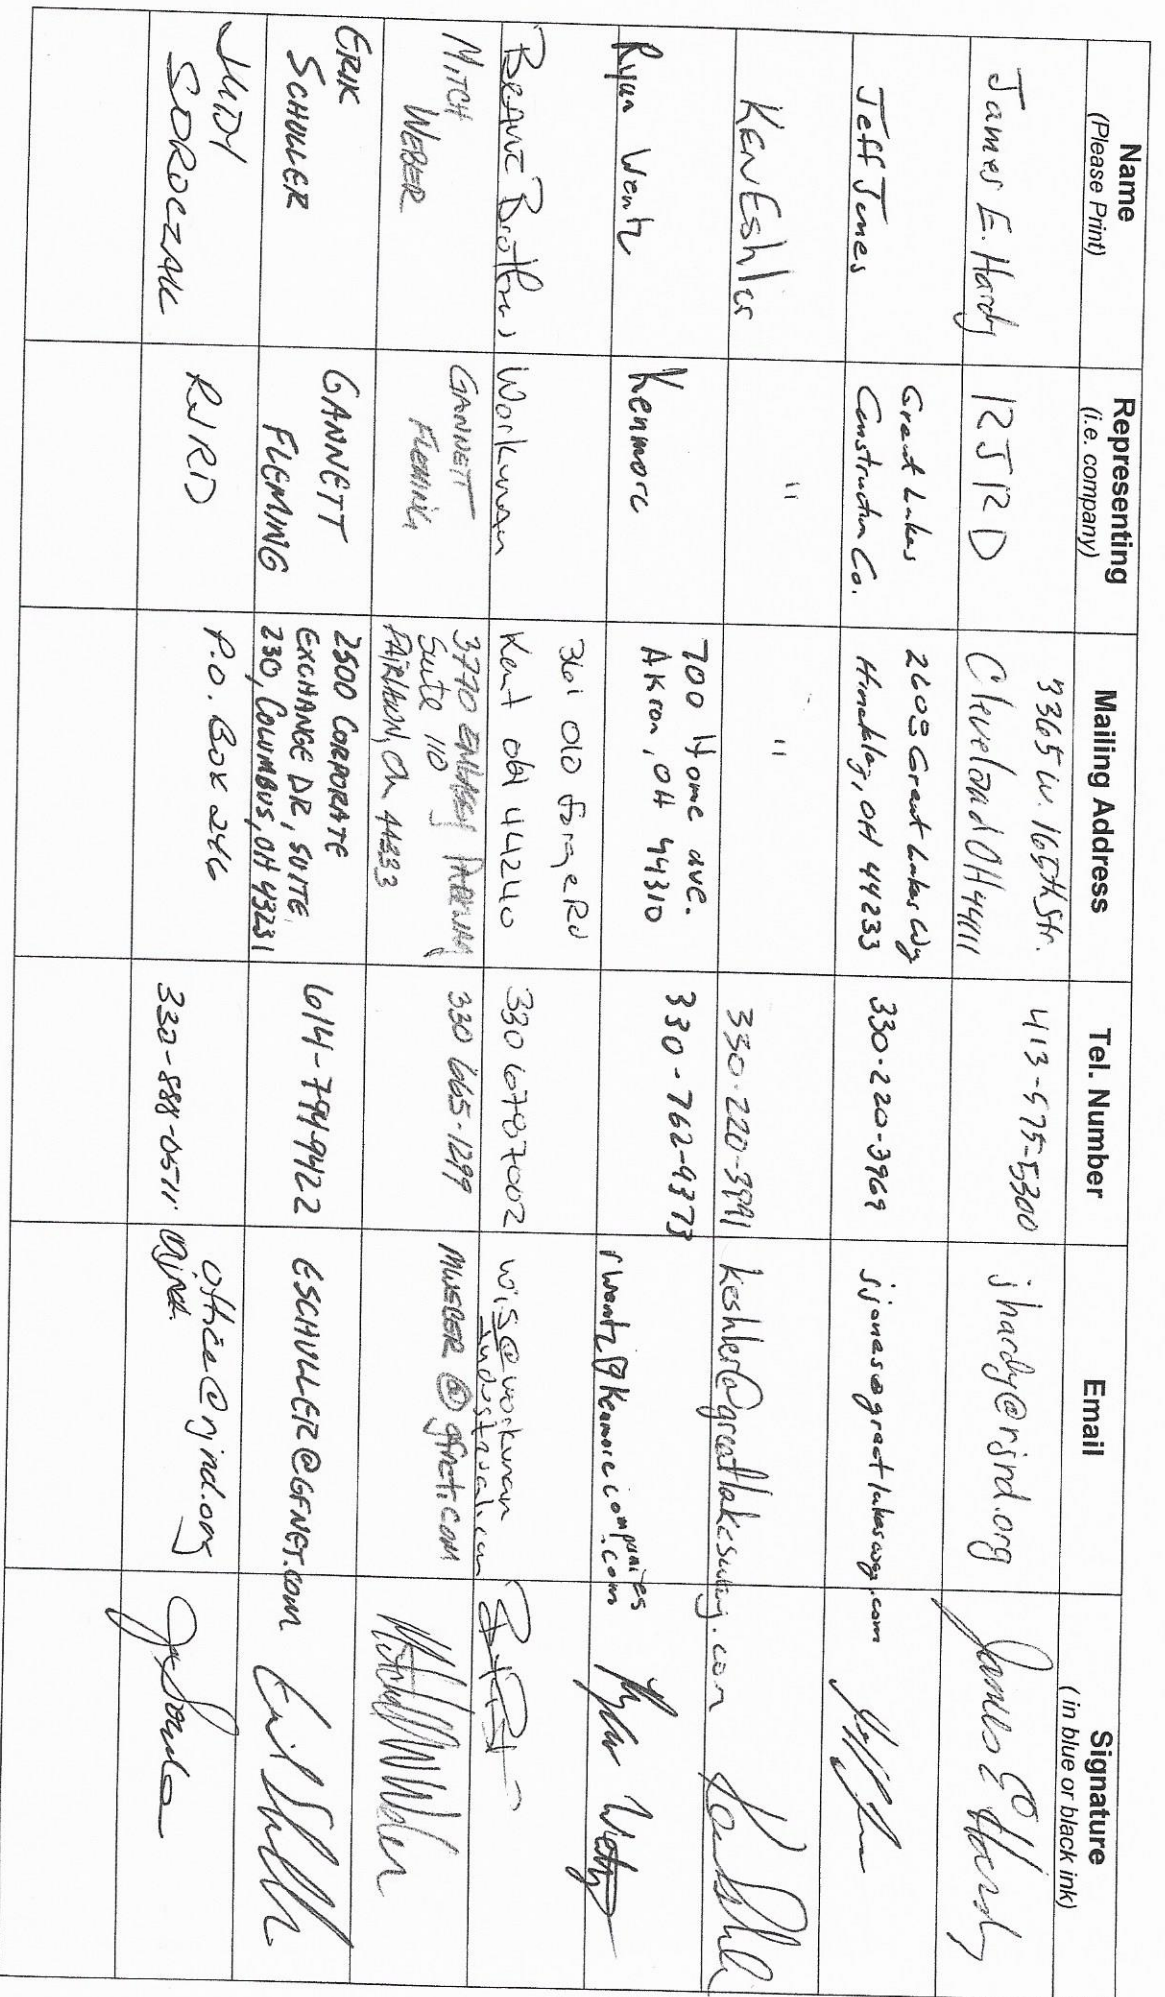 Name
(Please Print)
Representing
(i.e. company)
Mailing Address
Tel. Number
Email
Signature
( in blue or black ink)
James E. Hardy
RJRD
3365 W. 165th Str.
Cleveland OH 44111
413-575-5300
jhardy@rjrd.org
James E Hardy
Jeff Jones
Great Lakes
Construction Co.
2608 Great Lakes Way
Hinckley, OH 44233
330-220-3969
jjones@greatlakesway.com
Ken Eshler
"
"
330-220-3991
keshler@greatlakesway.com
Ryan Wentz
Kenmore
700 Home ave.
Akron, OH 44310
330-762-9373
rwentz@kenmorecompanies
.com
Ryan Wentz
Brothers
Workman
361 Old Forge Rd
Kent OH 44240
330 678 7002
wis@workman
industrial.com
MITCH
WEBER
GANNETT
FLEMING
3770 EMBASSY PARKWAY
Suite 110
FAIRLAWN, OH 44333
330 665-1299
MWEBER@gfnet.com
ERIK
SCHULLER
GANNETT
FLEMING
2500 CORPORATE
EXCHANGE DR, SUITE
230, COLUMBUS, OH 43231
614-794-9422
ESCHULLER@GFNET.com
JUDY
SOROCZAK
RJRD
P.O. Box 246
330-888-0571
office@rjrd.org